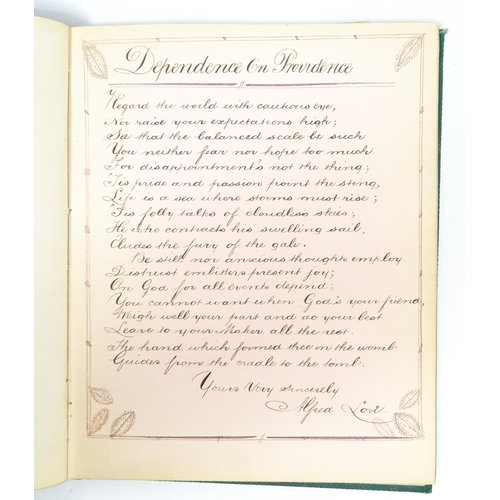 Dependence On Providence
Regard the world with cautious eye,
Nor raise your expectations high;
See that the balanced scale be such
You neither fear nor hope too much
For disappointment's not the thing;
'Tis pride and passion point the sting,
Life is a sea where storms must rise;
'Tis folly talks of cloudless skies;
He who contracts his swelling sail.
Eludes the fury of the gale.
Be still nor anxious thoughts employ
Distrust embitters present joy;
On God for all events depend;
You cannot want when God's your friend,
Weigh well your part and do your best
Leave to your Maker all the rest.
The hand which formed thee in the womb
Guides from the cradle to the tomb.
Yours Very Sincerely
Alfred Love.